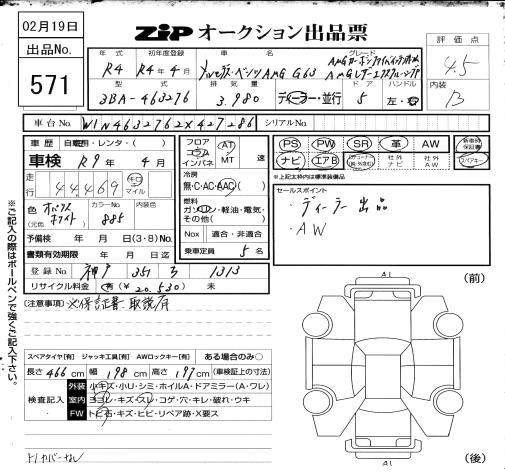 02月19日
ZiP オークション出品票
出品No.
571
評価点
4.5
内装
B
年式 初年度登録 車名 グレード
R4 R4年4月 メルセデス・ベンツAMG G63
型式 排気量 ドア ハンドル
3BA-463276 3.980 ディーラー・並行 5 左・右
車台No. W1N4632762X427286 シリアルNo.
車歴 自家用・レンタ・( )
車検 R9年4月
走行 44469 キロ マイル
色 (元色) オパリスホワイト カラーNo. 885 内装色
予備検 年 月 日(3・8)No.
書類有効期限 年 月 日迄
登録No. 神戸 351 ろ 1313
リサイクル料金 有(¥20.530) 未
フロア コラム インパネ AT MT 速
冷房 無・C・AC・AAC( )
燃料 ガソリン・軽油・電気・その他( )
Nox 適合・非適合
乗車定員 5名
PS PW SR 革 AW 新車時保証書
ナビ エアB 社外ナビ 社外AW スペアキー
※上記太枠内は標準装備品
セールスポイント
・ディーラー出品
・AW
(注意事項) ※保証書、取説有
スペアタイヤ[有] ジャッキ工具[有] AWロックキー[有] ある場合のみ○
長さ466cm 幅198cm 高さ197cm (車検証上の寸法)
検査記入
外装 小キズ・小U・シミ・ホイルA・ドアミラー(A・ワレ)
室内 ヨゴレ・キズ・スレ・コゲ・穴・キレ・破れ・ウキ
FW トビ石・キズ・ヒビ・リペア跡・X要ス
トノカバーなし
※ご記入の際はボールペンで強くご記入下さい。
A1
(前)
A1
(後)